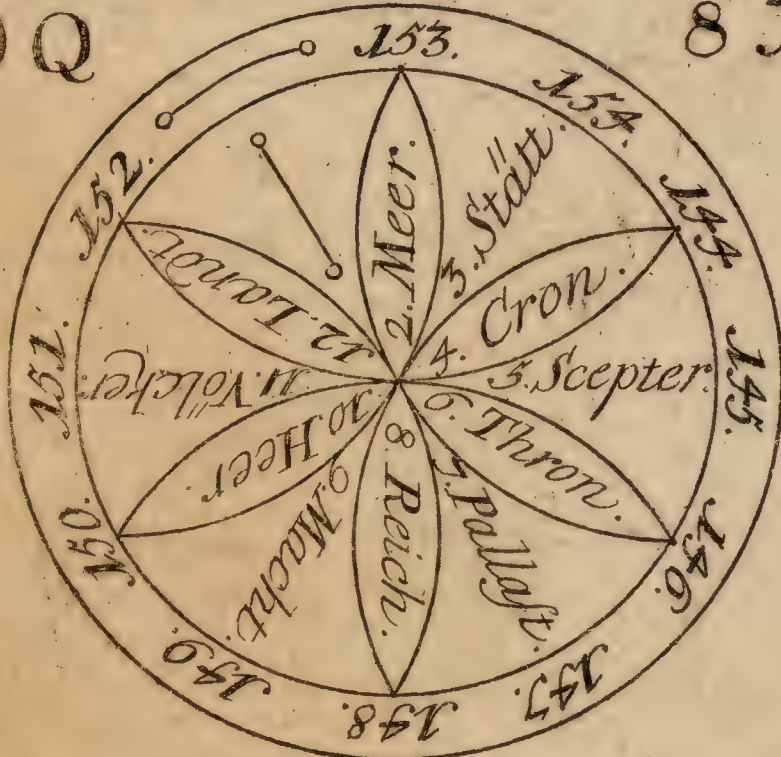 Q
8
153.
154.
144.
145.
146.
147.
148.
149.
150.
151.
152.
2. Meer.
3. Stätt.
4. Cron.
5. Scepter.
6. Thron.
7. Pallast.
8. Reich.
9. Macht.
10. Heer
11. Völcker.
12. Landt.